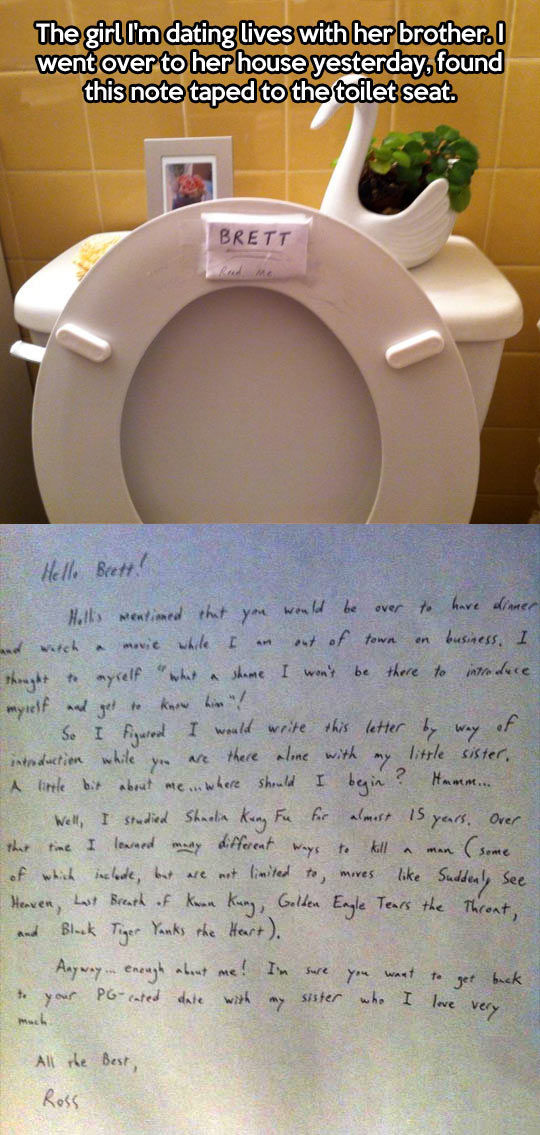 The girl I'm dating lives with her brother. I
went over to her house yesterday, found
this note taped to the toilet seat.
BRETT
Read Me
Hello Brett!
Hollis mentioned that you would be over to have dinner
and watch a movie while I am out of town on business. I
thought to myself "what a shame I won't be there to introduce
myself and get to know him"!
So I figured I would write this letter by way of
introduction while you are there alone with my little sister.
A little bit about me... where should I begin? Hmmm...
Well, I studied Shaolin Kung Fu for almost 15 years. Over
that time I learned many different ways to kill a man (some
of which include, but are not limited to, moves like Suddenly See
Heaven, Last Breath of Kwan Kung, Golden Eagle Tears the Throat,
and Black Tiger Yanks the Heart).
Anyway... enough about me! I'm sure you want to get back
to your PG-rated date with my sister who I love very
much.
All the Best,
Ross